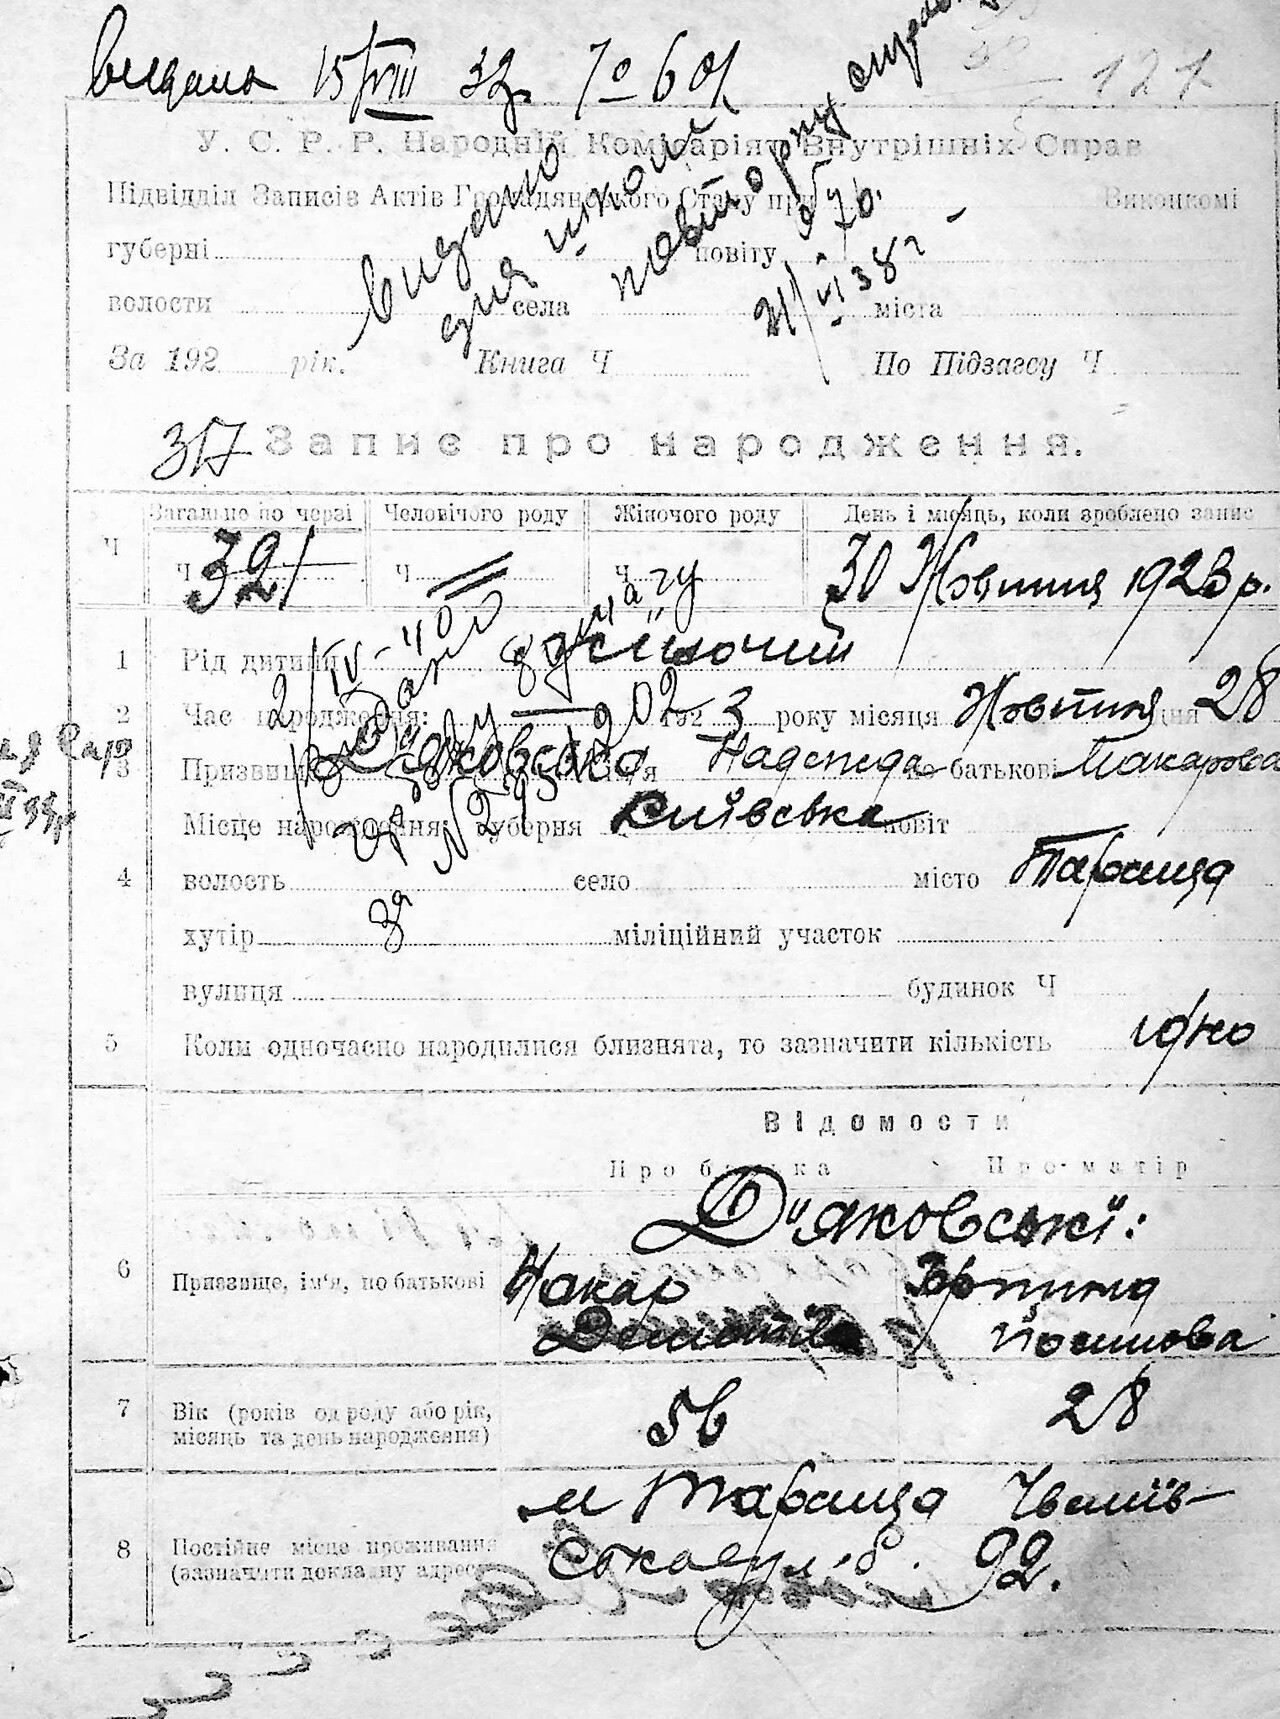 видана 15/VIII 32р. № 601
121
У. С. Р. Р. Народній Комісаріят Внутрішніх Справ
Підвідділ Записів Актів Громадянського Стану при Виконкомі
губерні повіту
волости села міста
За 192 рік. Книга Ч По Підзагсу Ч
видано
для школи
повторну
21/VI 38 г
317 Запис про народження.
Загально по черзі Чоловічого роду Жіночого роду День і місяць, коли зроблено запис
Ч Ч 321 Ч Ч 30 Жовтня 1923 р.
1 Рід дитини жіночий
2/IV-40
видано
2 Час народження: 192 3 року місяця Жовтня дня 28
3 Призвище Д"яковська ім'я Надежда по батькові Макарова
Місце народження: губерня Київська повіт
за №
4 волость село місто Тараща
хутір міліційний участок
вулиця будинок Ч
5 Коли одночасно народилися близнята, то зазначити кількість одно
Відомости
Про батька Про матір
Д"яковські:
6 Призвище, ім'я, по батькові Макар
Йосипова
7 Вік (років од роду або рік, місяць та день народження) 56 28
8 Постійне місце проживання (зазначити докладну адресу) м Тараща
92.